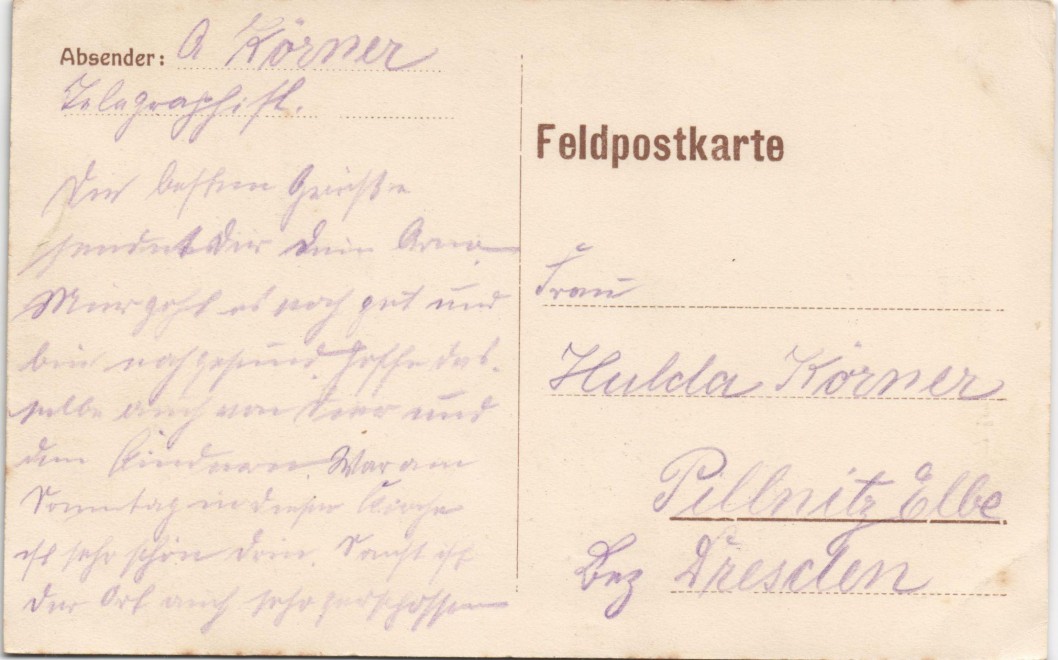 Absender: A Körner
Telegraphist.
Die besten Grüße
sendet Dir Dein Arno
Mir geht es noch gut und
bin noch gesund hoffe das-
selbe auch von Dir und
den Kindern War am
Sonntag in dieser Kirche
ist sehr schön drin. Sonst ist
der Ort auch sehr zerschossen
Feldpostkarte
Frau
Hulda Körner
Pillnitz Elbe
Bez Dresden